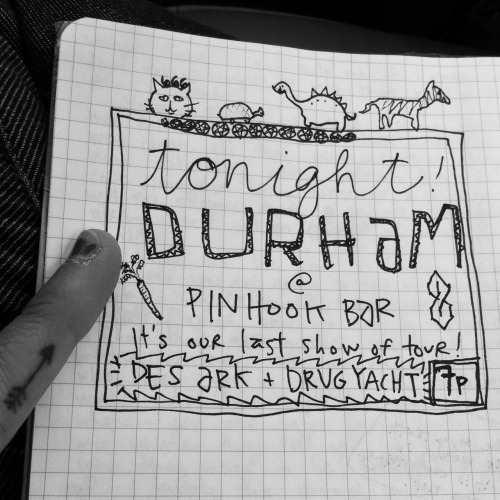 tonight!
DURHAM
@
PINHOOK BAR
It's our last show of tour!
DES ARK + DRUG YACHT 7p